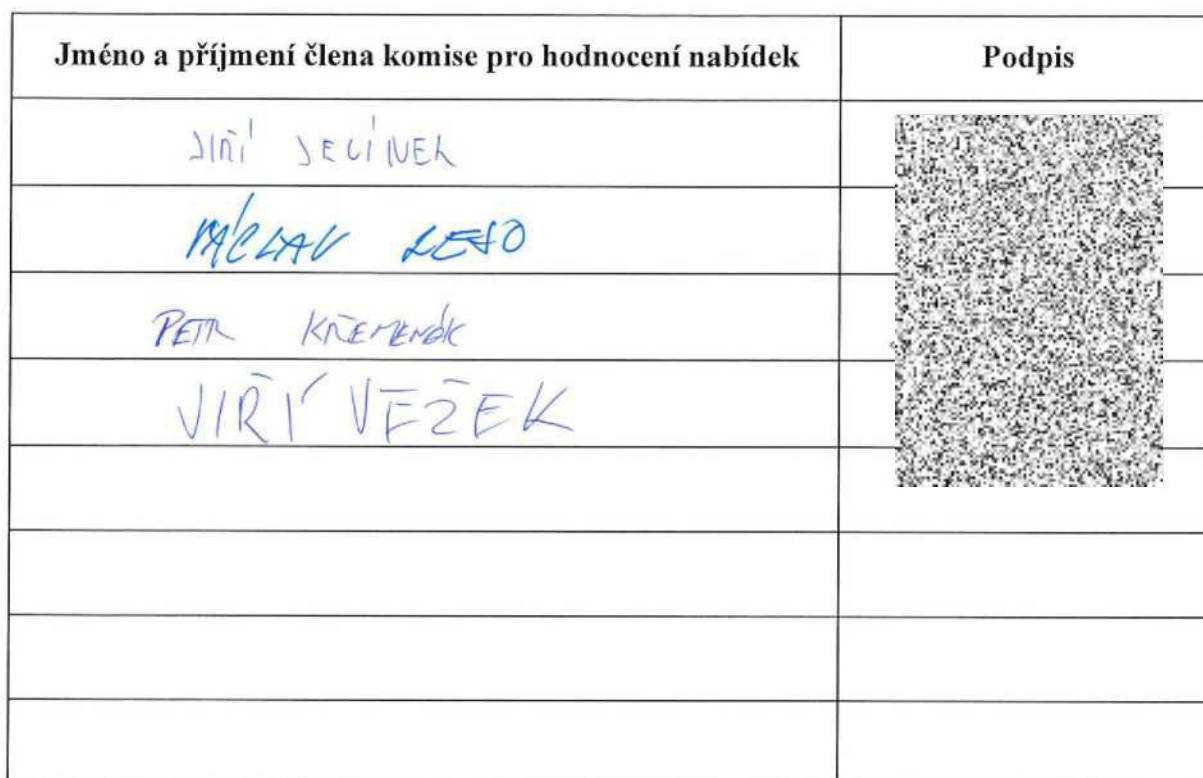 Jméno a příjmení člena komise pro hodnocení nabídek Podpis
JIŘÍ JELÍNEK
VÁCLAV
PETR
JIŘÍ VEŽEK